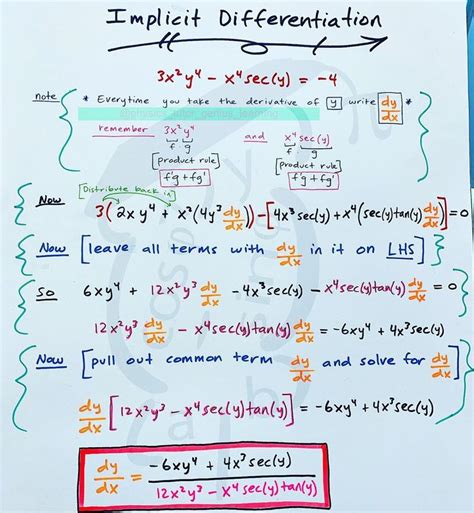 Implicit Differentiation
3x²y⁴ - x⁴sec(y) = -4
note * Everytime you take the derivative of y write dy/dx *
remember 3x²y⁴ and x⁴ sec(y)
f g f g
[product rule] [product rule]
f'g + fg' f'g + fg'
[Distribute back in]
Now 3(2xy⁴ + x²(4y³ dy/dx)) - [4x³sec(y) + x⁴(sec(y)tan(y) dy/dx] = 0
Now [leave all terms with dy/dx in it on LHS]
So 6xy⁴ + 12x²y³ dy/dx - 4x³sec(y) - x⁴sec(y)tan(y) dy/dx = 0
12x²y³ dy/dx - x⁴sec(y)tan(y) dy/dx = -6xy⁴ + 4x³sec(y)
Now [pull out common term dy/dx and solve for dy/dx]
dy/dx [12x²y³ - x⁴sec(y)tan(y)] = -6xy⁴ + 4x³sec(y)
dy/dx = -6xy⁴ + 4x³sec(y) / 12x²y³ - x⁴sec(y)tan(y)